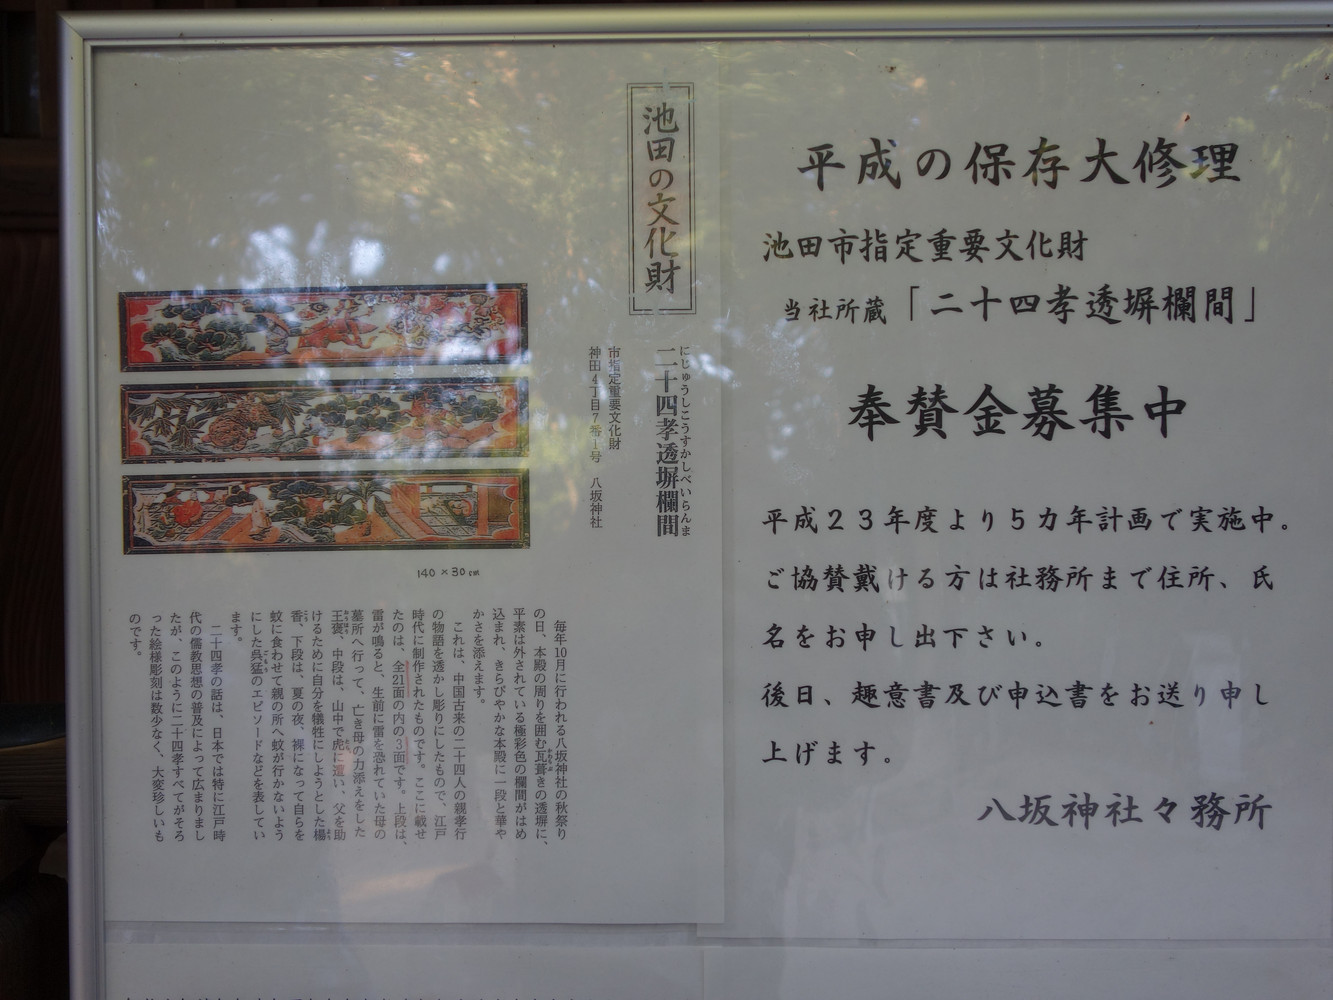 平成の保存大修理
池田市指定重要文化財
当社所蔵「二十四孝透塀欄間」
奉賛金募集中
平成２３年度より５カ年計画で実施中。
ご協賛戴ける方は社務所まで住所、氏
名をお申し出下さい。
後日、趣意書及び申込書をお送り申し
上げます。
八坂神社々務所
池田の文化財
にじゅうしこうすかしべいらんま
二十四孝透塀欄間
市指定重要文化財
神田4丁目7番1号 八坂神社
140×30cm
毎年10月に行われる八坂神社の秋祭り
の日、本殿の周りを囲む瓦葺きの透塀に、
平素は外されている極彩色の欄間がはめ
込まれ、きらびやかな本殿に一段と華や
かさを添えます。
これは、中国古来の二十四人の親孝行
の物語を透かし彫りにしたもので、江戸
時代に制作されたものです。ここに載せ
たのは、全21面の内の3面です。上段は、
雷が鳴ると、生前に雷を恐れていた母の
墓所へ行って、亡き母の力添えをした
王褒、中段は、山中で虎に遭い、父を助
けるために自分を犠牲にしようとした楊
香、下段は、夏の夜、裸になって自らを
蚊に食わせて親の所へ蚊が行かないよう
にした呉猛のエピソードなどを表してい
ます。
二十四孝の話は、日本では特に江戸時
代の儒教思想の普及によって広まりまし
たが、このように二十四孝すべてがそろ
った絵様彫刻は数少なく、大変珍しいも
のです。